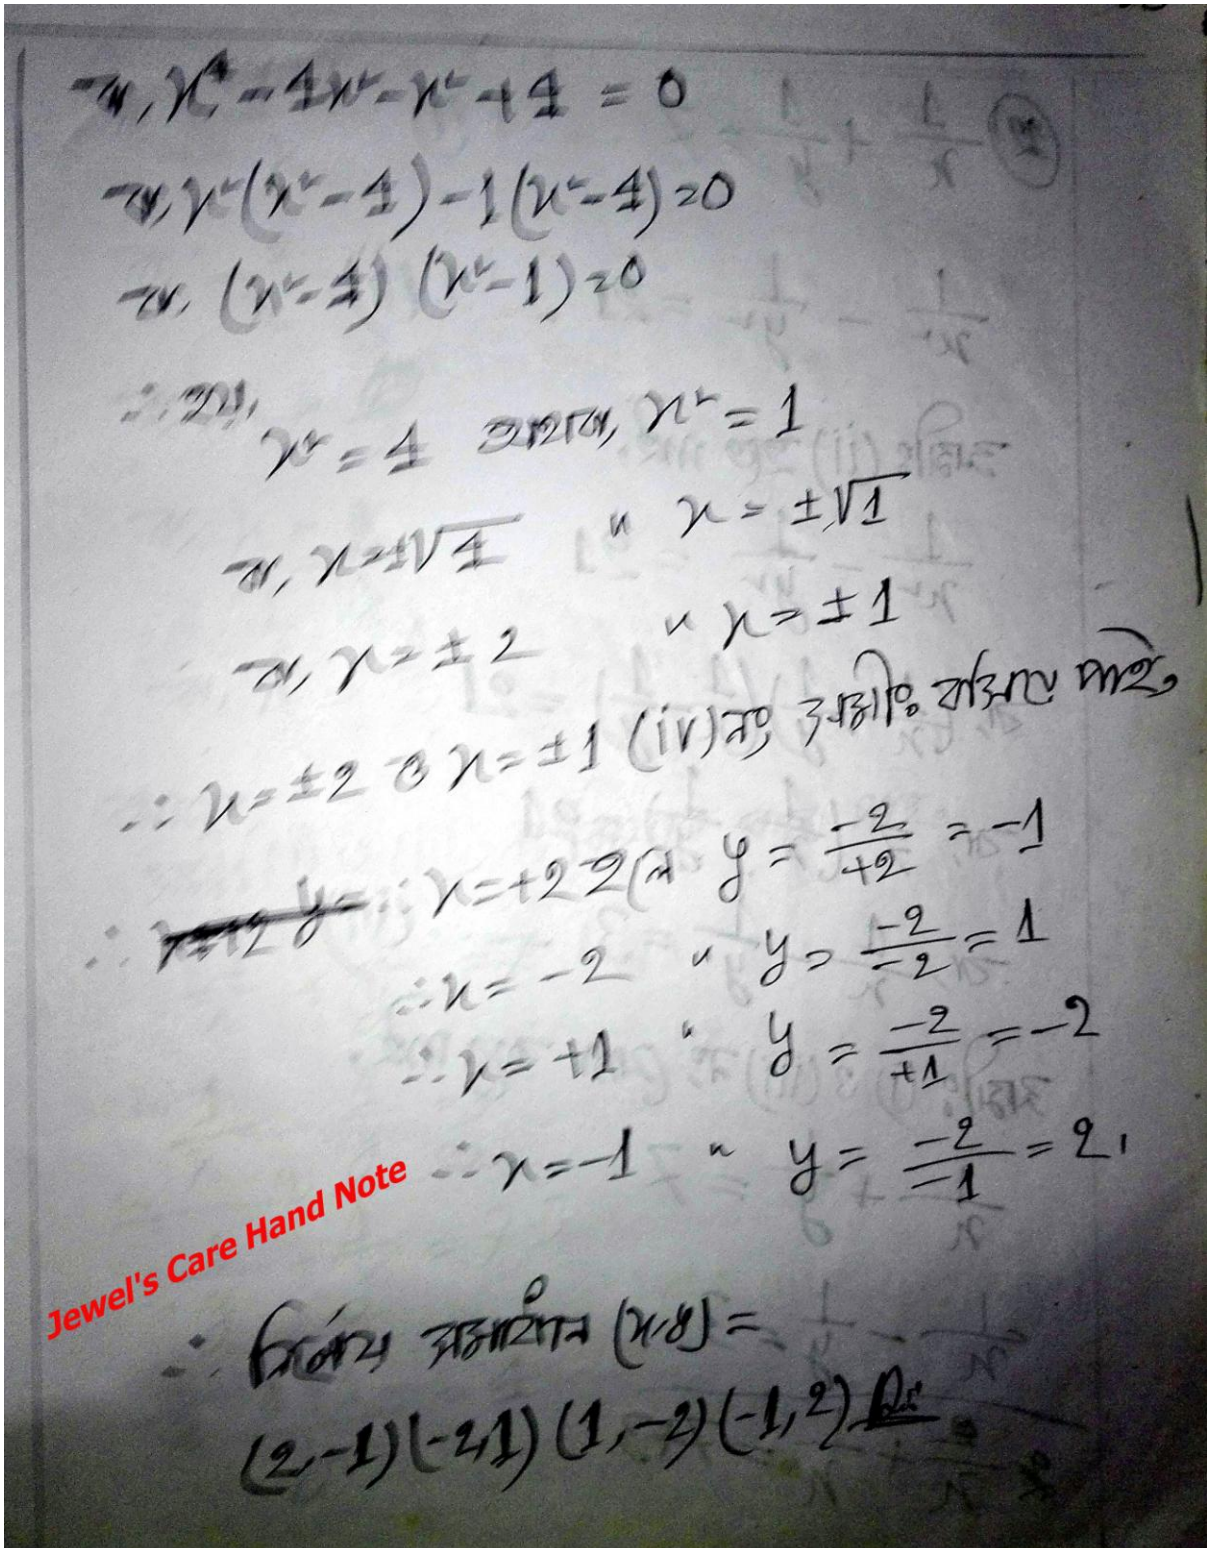 বা, x⁴ - 4x² - x² + 4 = 0
বা, x²(x² - 4) - 1(x² - 4) = 0
বা, (x² - 4) (x² - 1) = 0
∴ হয়,
x² = 4 অথবা, x² = 1
বা, x = ±√4 " x = ±√1
বা, x = ±2 " x = ±1
∴ x = ±2 ও x = ±1 (iv) নং সমীঃ বসিয়ে পাই,
∴ x = +2 হলে y = -2/+2 = -1
∴ x = -2 " y = -2/-2 = 1
∴ x = +1 " y = -2/+1 = -2
∴ x = -1 " y = -2/-1 = 2।
Jewel's Care Hand Note
∴ নির্ণেয় সমাধান (x, y) =
(2, -1) (-2, 1) (1, -2) (-1, 2)